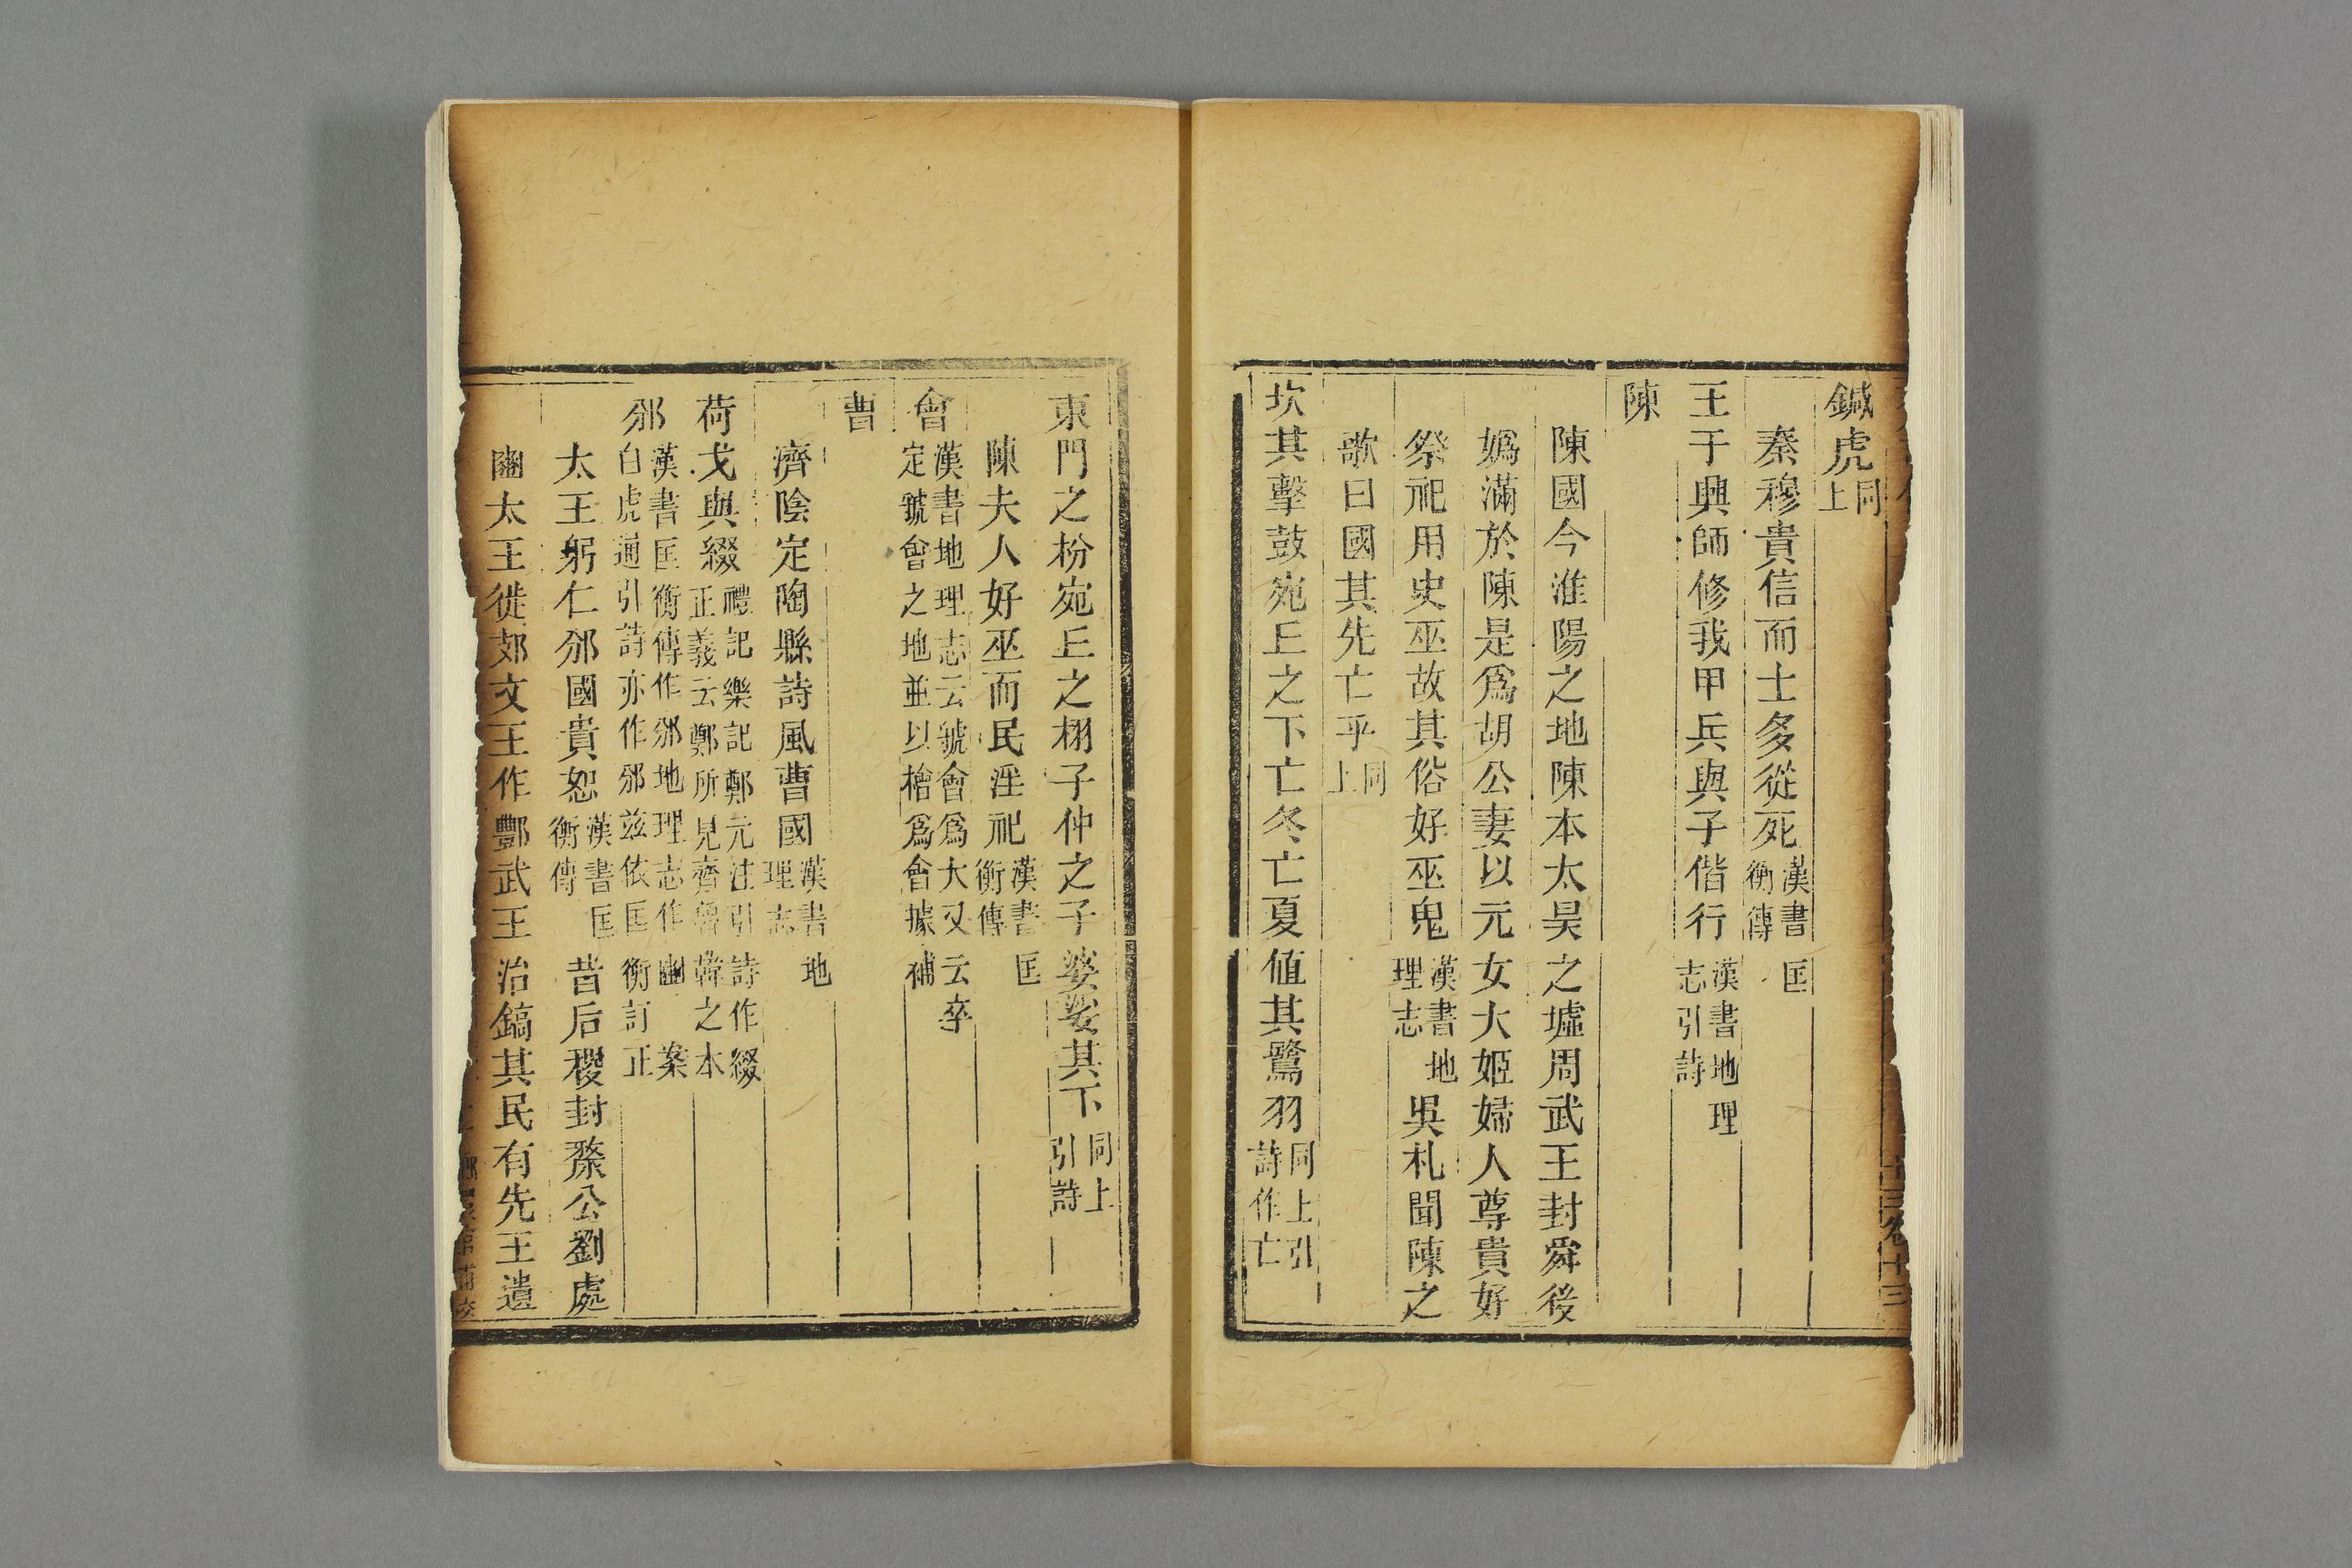 鍼虎同上
秦穆貴信而士多從死漢書匡衡傳
王于興師修我甲兵與子偕行漢書地理志引詩
陳
陳國今淮陽之地陳本太昊之墟周武王封舜後
嬀滿於陳是爲胡公妻以元女大姬婦人尊貴好
祭祀用史巫故其俗好巫鬼漢書地理志吳札聞陳之
歌曰國其先亡乎同上
坎其擊鼓宛丘之下亡冬亡夏值其鷺羽同上引詩作亡
東門之枌宛丘之栩子仲之子婆娑其下同上引詩
陳夫人好巫而民淫祀漢書匡衡傳
會漢書地理志云虢會爲大又云卒定虢會之地並以檜爲會據補
曹
濟陰定陶縣詩風曹國漢書地理志
荷戈與綴禮記樂記鄭元注引詩作綴正義云鄭所見齊魯韓之本
邠漢書匡衡傳作邠地理志作豳案白虎通引詩亦作邠兹依匡衡訂正
太王躬仁邠國貴恕漢書匡衡傳昔后稷封斄公劉處
豳太王徙郊文王作酆武王治鎬其民有先王遺